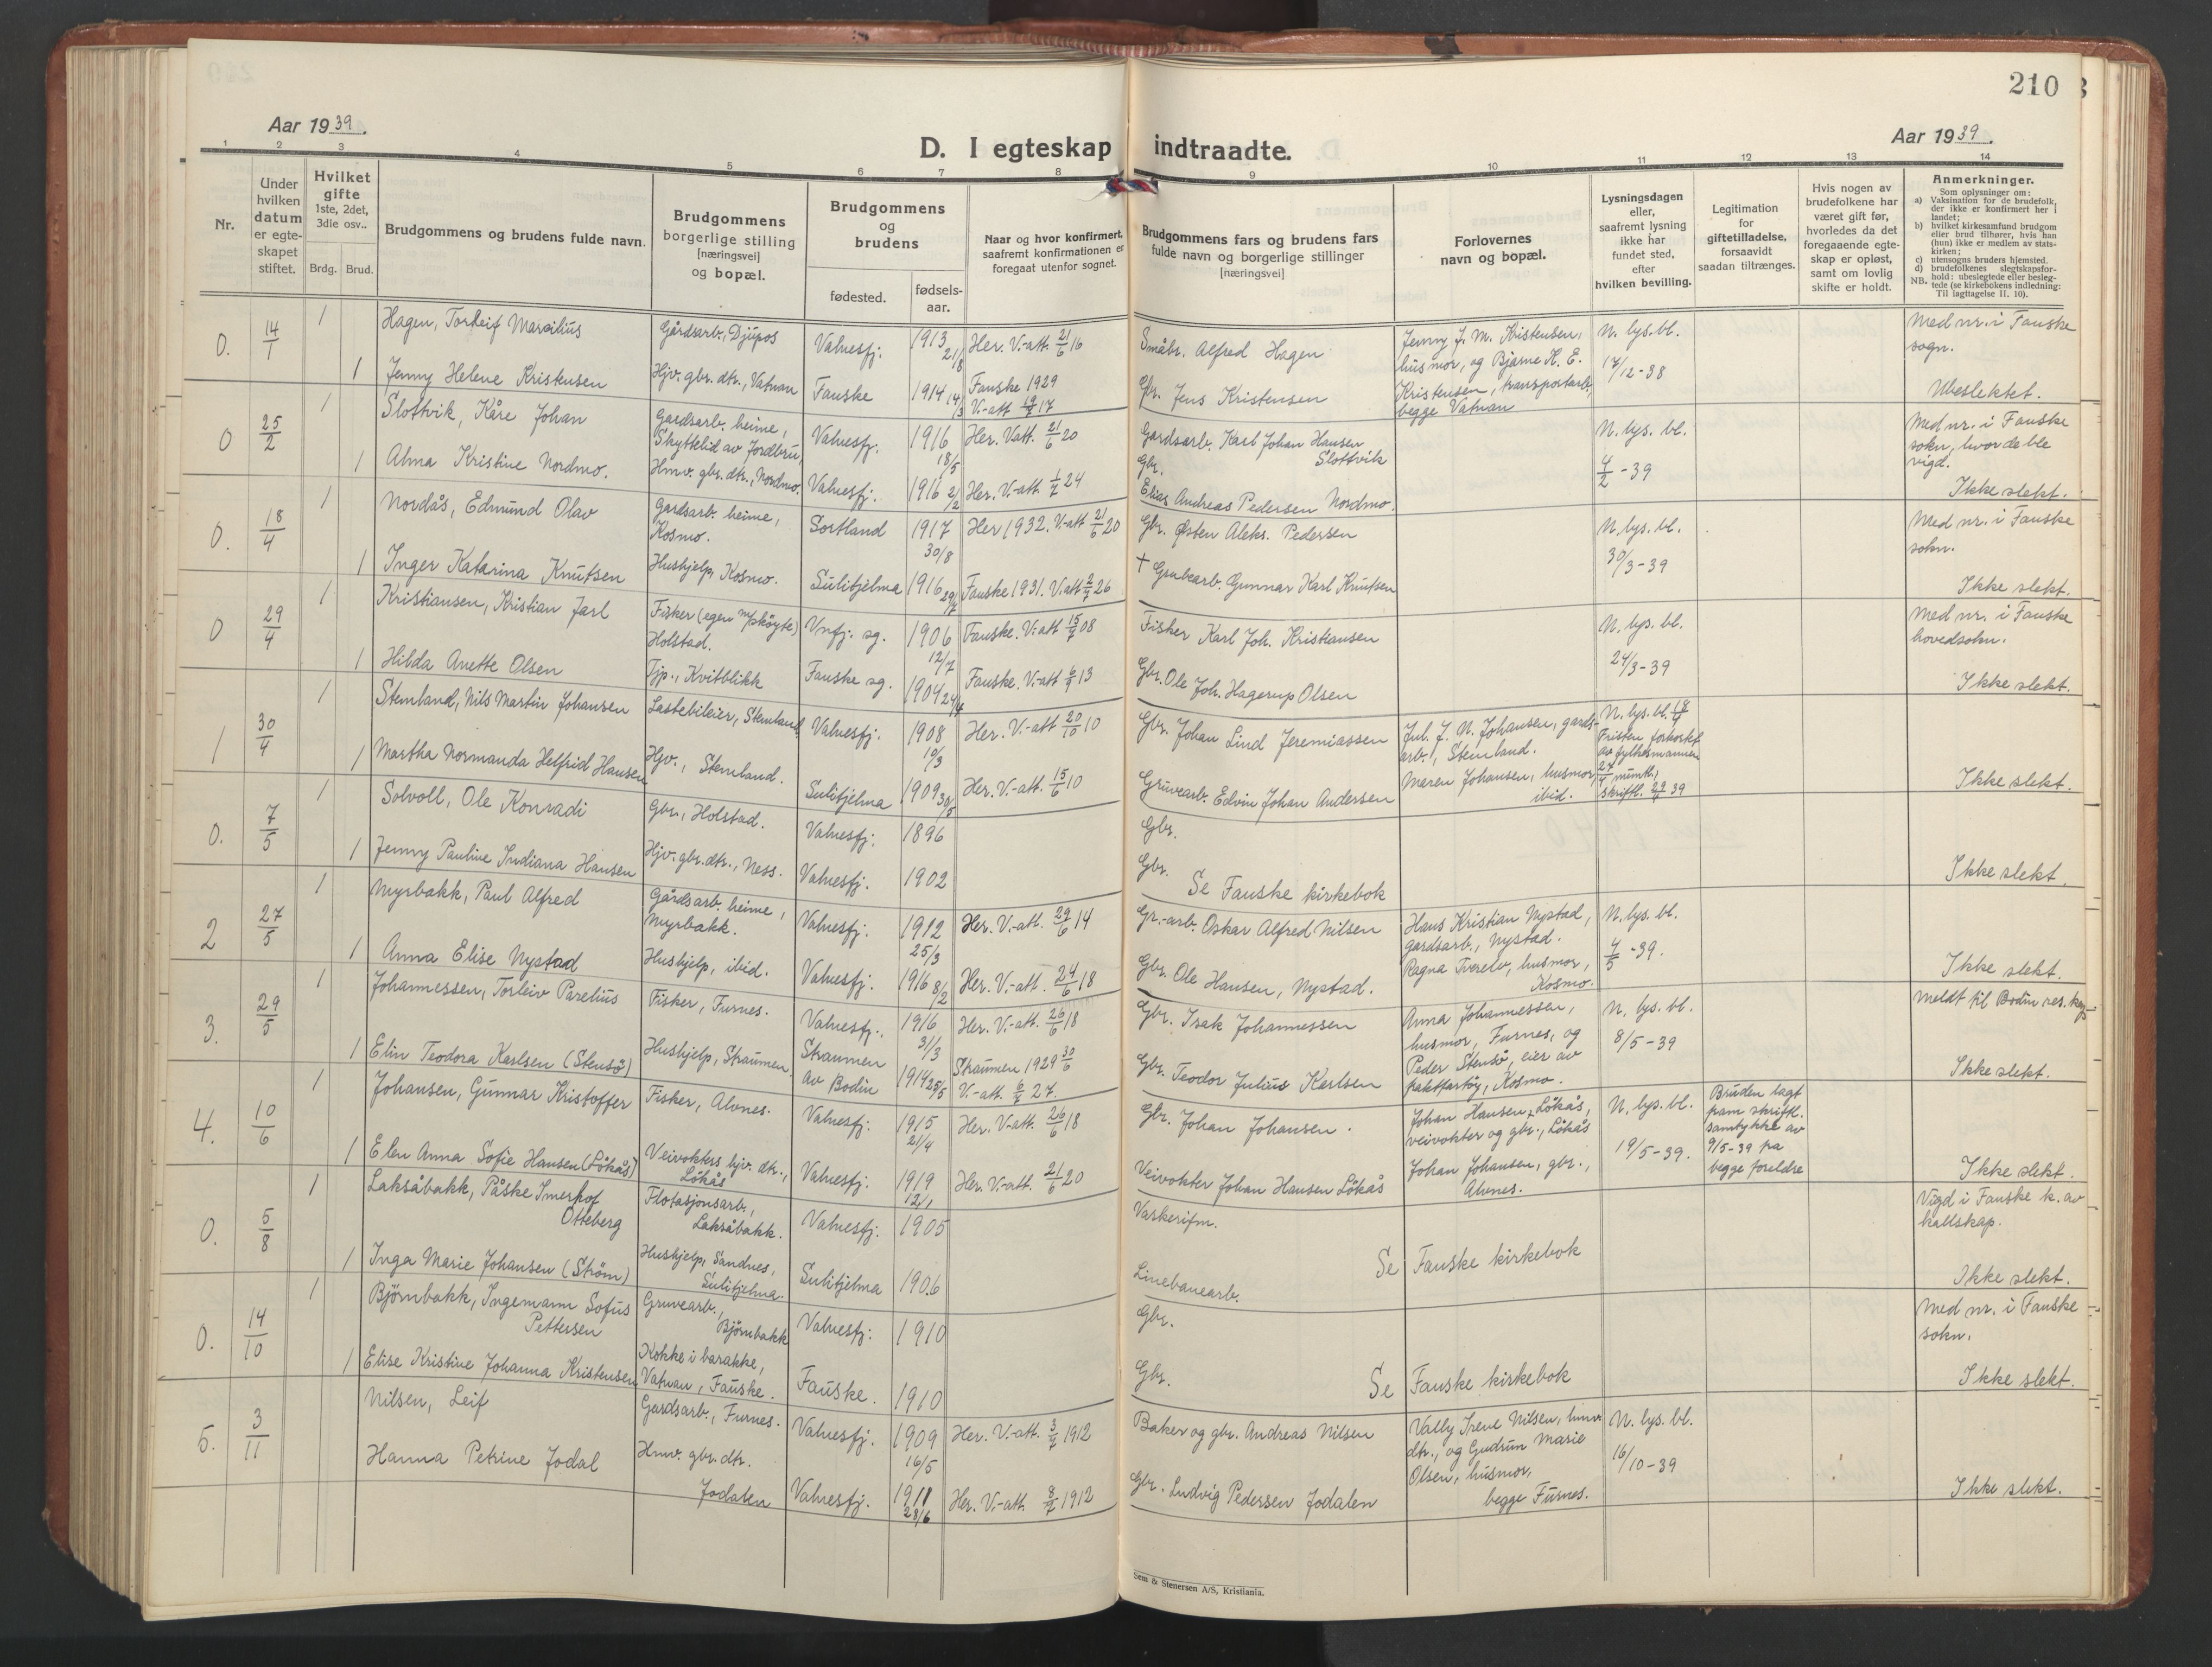 210
Aar 1939.
D. I egteskap indtraadte.
Aar 1939.
1 2 3 4 5 6 7 8 9 10 11 12 13 14
Nr.
Under hvilken datum er egteskapet stiftet.
Hvilket gifte 1ste, 2det, 3die osv..
Brdg. Brud.
Brudgommens og brudens fulde navn.
Brudgommens borgerlige stilling [næringsvei] og bopæl.
Brudgommens og brudens
fødested.
fødselsaar.
Naar og hvor konfirmert, saafremt konfirmationen er foregaat utenfor sognet.
Brudgommens fars og brudens fars fulde navn og borgerlige stillinger [næringsvei]
Forlovernes navn og bopæl.
Lysningsdagen eller, saafremt lysning ikke har fundet sted, efter hvilken bevilling.
Legitimation for giftetilladelse, forsaavidt saadan tiltrænges.
Hvis nogen av brudefolkene har været gift før, hvorledes da det foregaaende egteskap er opløst, samt om lovlig skifte er holdt.
Anmerkninger.
Som oplysninger om:
a) Vaksination for de brudefolk, der ikke er konfirmert her i landet;
b) hvilket kirkesamfund brudgom eller brud tilhører, hvis han (hun) ikke er medlem av statskirken;
c) utensogns bruders hjemsted.
d) brudefolkenes slegtskapsforhold: ubeslegtede eller beslegtede (se kirkebokens indledning: Til Iagttagelse II. 10).
NB.
0. 14/1 1 Hagen, Torleif Marselius Gårdsarb., Djupos Valnesfj. 1913 21/8 Her. V.-att. 21/6 16 Småbr. Alfred Hagen Jenny J. M. Kristensen, husmor, og Bjarne K. E. Kristensen, transportarb., begge Vatnan N. lys. bl. 17/12-38 Med nr. i Fauske sogn.
1 Jenny Helene Kristensen Hjv. gbr. dtr., Vatnan Fauske 1914 14/3 Fauske 1929 V.-att 19/7 17 Gbr. Jens Kristensen Ubeslektet.
0 25/2 1 Slottvik, Kåre Johan Gardsarb. heime, Skyttelid av Jordbru, Valnesfj. 1916 18/5 Her. Vatt. 21/6 20 Gardsarb. Karl Johan Hansen Slottvik N. lys. bl. 4/2-39 Med nr. i Fauske sokn, hvor de ble vigd.
1 Alma Kristine Nordmo. Hmv. gbr. dtr., Nordmo. Valnesfj. 1916 2/2 Her. V.-att. 1/7 24 Gbr. Elias Andreas Pedersen Nordmo. Ikke slekt.
0. 18/4 1 Nordås, Edmund Olav Gardsarb. heime, Kosmo. Sortland 1917 30/8 Her 1932. V-att 21/6 20 Gbr. Østen Aleks. Pedersen N. lys. bl. 30/3-39 Med nr. i Fauske sokn.
1 Inger Katarina Knutsen Hushjelp, Kosmo. Sulitjelma 1916 Fauske 1931. V.att 26 † Grubearb. Gunnar Karl Knutsen Ikke slekt.
0 29/4 1 Kristiansen, Kristian Jarl Fisker (egen m/skøyte) Holstad. Vnfj. sg. 1906 12/7 Fauske. V.-att 15/7 08 Fisker Karl Joh. Kristiansen N. lys. bl. 24/3-39 Med nr. i Fauske hovedsokn.
1 Hilda Anette Olsen Tjp., Kvitblikk Fauske sg. 1904 Fauske. V.-att 13 Gbr. Ole Joh. Hagerup Olsen Ikke slekt.
1 30/4 1 Stemland, Nils Martin Johansen Lastebileier, Stemland Valnesfj. 1908 10/3 Her. V.-att 20/10 10 Gbr. Johan Lind Jeremiassen Jul. J. N. Johansen, gardsarb., Stemland. N. lys. bl. 18/4 Fristen forkortet av fylkesmannen
1 Martha Normanda Helfrid Hansen Hjv., Stemland. Sulitjelma 1909 30/5 Her. V.-att. 15/6 10 Gruvearb. Edvin Johan Andersen Maren Johansen, husmor, ibid. 27/4 muntl., skriftl. 39 Ikke slekt.
0. 7/5 1 Solvoll, Ole Konradi Gbr., Holstad. Valnesfj. 1896 Gbr.
1 Jenny Pauline Indiana Hansen Hjv. gbr. dtr., Ness. Valnesfj. 1902 Gbr. Se Fauske kirkebok Ikke slekt.
2 27/5 1 Myrbakk, Paul Alfred Gårdsarb. heime, Myrbakk. Valnesfj. 1912 25/3 Her. V.-att. 29/6 14 Gr.-arb. Oskar Alfred Nilsen Hans Kristian Nystad, gardsarb., Nystad. N. lys. bl. 4/5-39.
1 Anna Elise Nystad Hushjelp, ibid. Valnesfj. 1916 8/2 Her. V.-att. 24/6 18 Gbr. Ole Hansen, Nystad. Ragna Tverelv, husmor, Kosmo. Ikke slekt.
3. 29/5 1 Johannessen, Torleiv Parelius Fisker, Furnes. Valnesfj. 1916 31/3 Her. V.-att. 26/6 18 Gbr. Isak Johannessen Anna Johannessen, husmor, Furnes, og N. lys. bl. 8/5-39 Meldt til Bodin res. kap.
1 Elin Teodora Karlsen (Stensø) Hushjelp, Straumen. Straumen av Bodin 1914 25/5 Straumen 1929 30/6 V.-att. 6/7 27. Gbr. Teodor Julius Karlsen Peder Stensø, eier av fraktfartøy, Kosmo. Ikke slekt.
4. 10/6 1 Johansen, Gunnar Kristoffer Fisker, Alvnes. Valnesfj. 1915 21/4 Her. V-att. 26/6 18 Gbr. Johan Johansen. Johan Hansen, Løkås, veivokter og gbr., Løkås N. lys. bl. 19/5-39. Bruden lagt fram skriftl. samtykke av 9/5-39 fra begge foreldre
1 Elen Anna Sofie Hansen (Løkås) Veivokters hjv. dtr., Løkås Valnesfj. 1919 12/1 Her. V.-att. 21/6 20 Veivokter Johan Hansen Løkås Johan Johansen, gbr., Alvnes. Ikke slekt.
0. 5/8 1 Laksåbakk, Påske Imerhof Otteberg Flotasjonsarb., Laksåbakk. Valnesfj. 1905 Vaskerifm. Vigd i Fauske k. av kallskap.
1 Inga Marie Johansen (Strøm) Hushjelp, Sandnes, Sulitjelma. Sulitjelma 1906 Linebanearb. Se Fauske kirkebok Ikke slekt.
0. 14/10 1 Bjørnbakk, Ingemann Sofus Pettersen Gruvearb., Bjørnbakk Valnesfj. 1910 Gbr. Med nr. i Fauske sokn.
1 Elise Kristine Johanna Kristensen Kokke i barakke, Vatnan, Fauske. Fauske. 1910 Gbr. Se Fauske kirkebok Ikke slekt.
5. 3/11 Nilsen, Leif Gardsarb., Furnes. Valnesfj. 1909 16/5 Her. V.-att. 3/7 1912 Baker og gbr. Andreas Nilsen Vally Irene Nilsen, hmv dtr., og Gudrun Marie Olsen, husmor, begge Furnes. N. lys. bl. 16/10-39
Hanna Petrine Jodal Hmv. gbr. dtr. Jodalen Valnesfj. 1911 28/6 Her. V.-att. 8/7 1912 Gbr. Ludvig Pedersen Jodalen Ikke slekt.
Sem & Stenersen A/S, Kristiania.